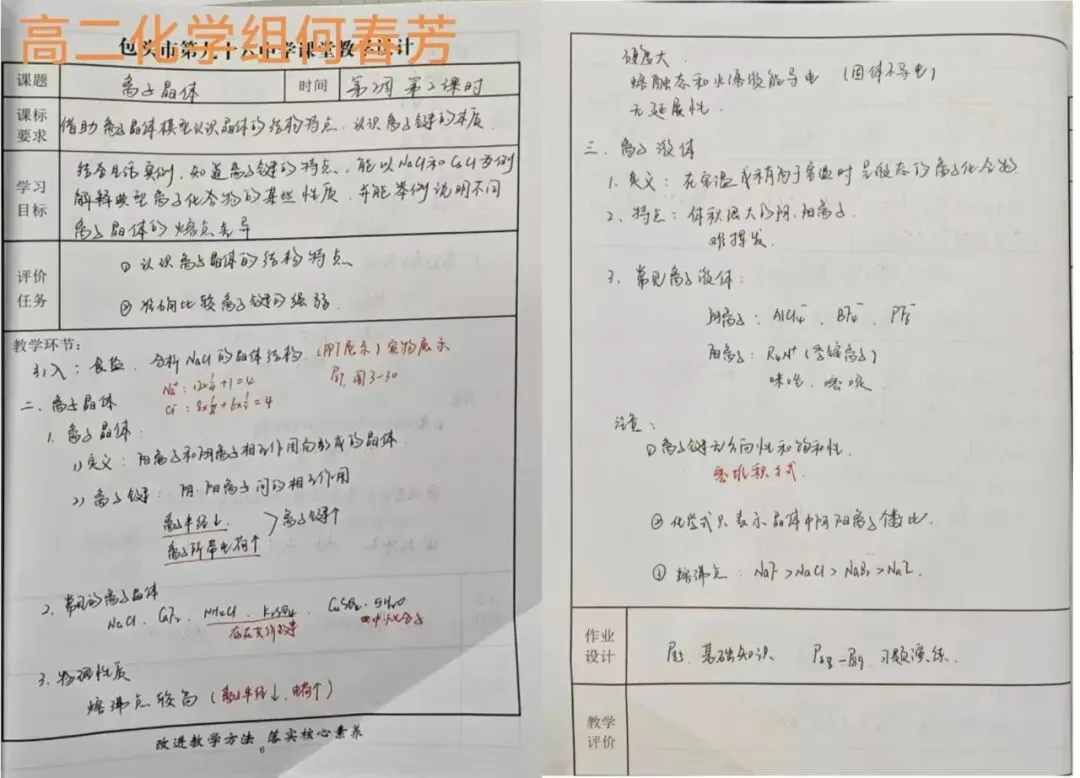 高二化学组何春芳
包头市第九十六中学课堂教学设计
课题 离子晶体 时间 第2周 第2课时
课标要求 借助离子晶体模型认识晶体的结构特点,认识离子键的本质.
学习目标 结合生活实例,知道离子键的特点,能以NaCl和CsCl为例
解释典型离子化合物的某些性质,并能举例说明不同
离子晶体的熔点差异
评价任务 ① 认识离子晶体的结构特点
② 准确比较离子键的强弱.
教学环节:
引入:食盐.分析NaCl的晶体结构.(PPT展示)实物展示
Na⁺:12×1/4+1=4 图3-30
Cl⁻:8×1/8+6×1/2=4
二.离子晶体
1.离子晶体:
1)定义:阳离子和阴离子相互作用而形成的晶体.
2)离子键:阴.阳离子间的相互作用
离子半径↓.
离子所带电荷↑ >离子键↑
2.常见的离子晶体
NaCl.CaF₂.NH₄Cl.K₂SO₄.CuSO₄·5H₂O
存在共价键
3.物理性质
熔沸点较高(离子半径↓.电荷↑)
改进教学方法 落实核心素养
6
硬度大.
熔融态和水溶液能导电 (固体不导电)
无延展性.
三.离子液体
1.定义:在室温或稍高于室温时呈液态的离子化合物.
2.特点:体积很大的阴.阳离子.
难挥发.
3.常见离子液体:
阴离子:AlCl₄⁻.BF₄⁻.PF₆⁻
阳离子:R₄N⁺(季铵离子)
咪唑.嘧啶.
注意:
①离子键无方向性和饱和性.
密堆积方式.
②化学式只表示晶体中阴阳离子个数比.
③熔沸点:NaF>NaCl>NaBr>NaI.
作业设计 基础知识 习题演练.
教学评价